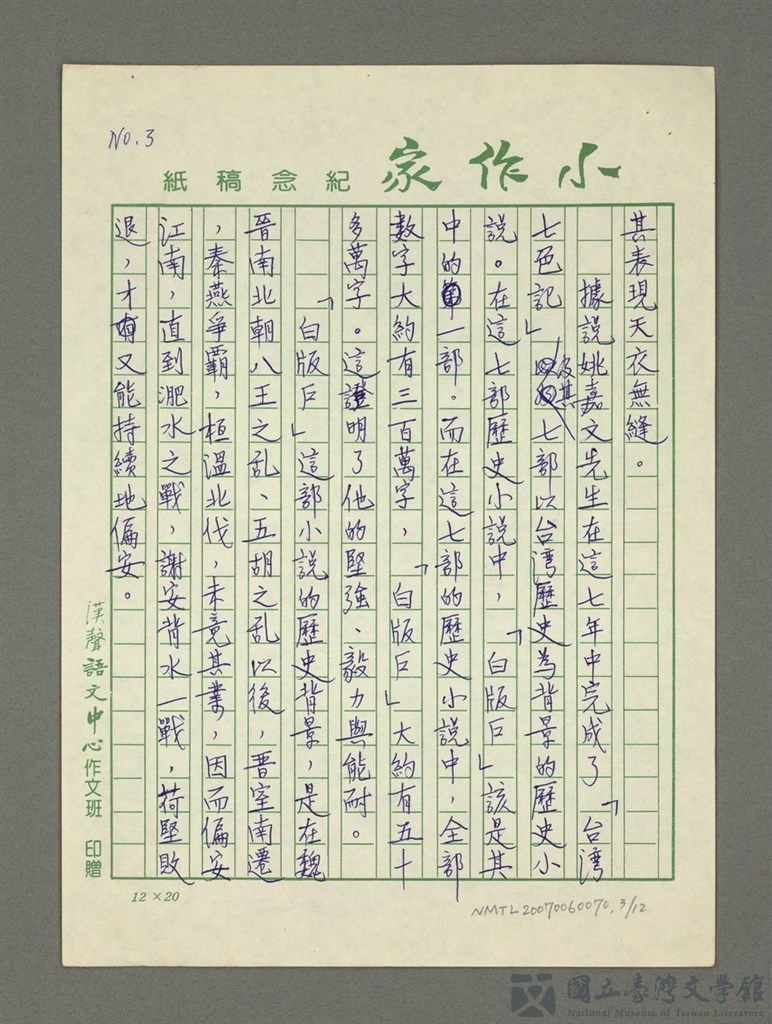 No. 3
小作家
紀念稿紙
其表現天衣無縫。
據說姚嘉文先生在這七年中完成了「台湾
七色記」七部以台湾歷史為背景的歷史小
說。在這七部歷史小說中,「白版戶」該是其
中的一部。而在這七部的歷史小說中,全部
数字大約有三百萬字,「白版戶」大約有五十
多萬字。這證明了他的堅強、毅力與能耐。
「白版戶」這部小說的歷史背景,是在魏
晉南北朝八王之乱、五胡之乱以後,晉室南遷
,秦燕爭霸,桓溫北伐,未竟其業,因而偏安
江南,直到淝水之戰,謝安背水一戰,荷堅敗
退,才又能持續地偏安。
漢聲語文中心作文班 印贈
12×20
NMTL20070060070, 3/12
國立臺灣文學館
National Museum of Taiwan Literature